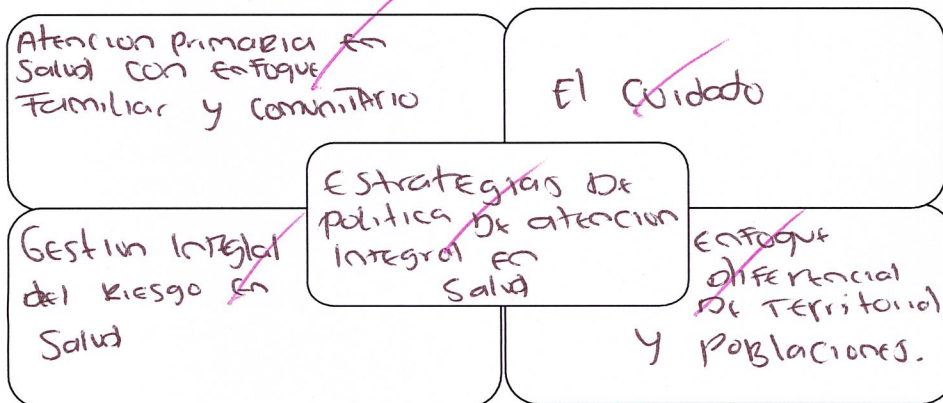 Atencion primaria en
Salud con enfoque
Familiar y comunitario
El Cuidado
Estrategias De
politica De atencion
integral en
Salud
Gestion Integlal
del Riesgo en
Salud
enfoque
diferencial
De Territorial
y Poblaciones.